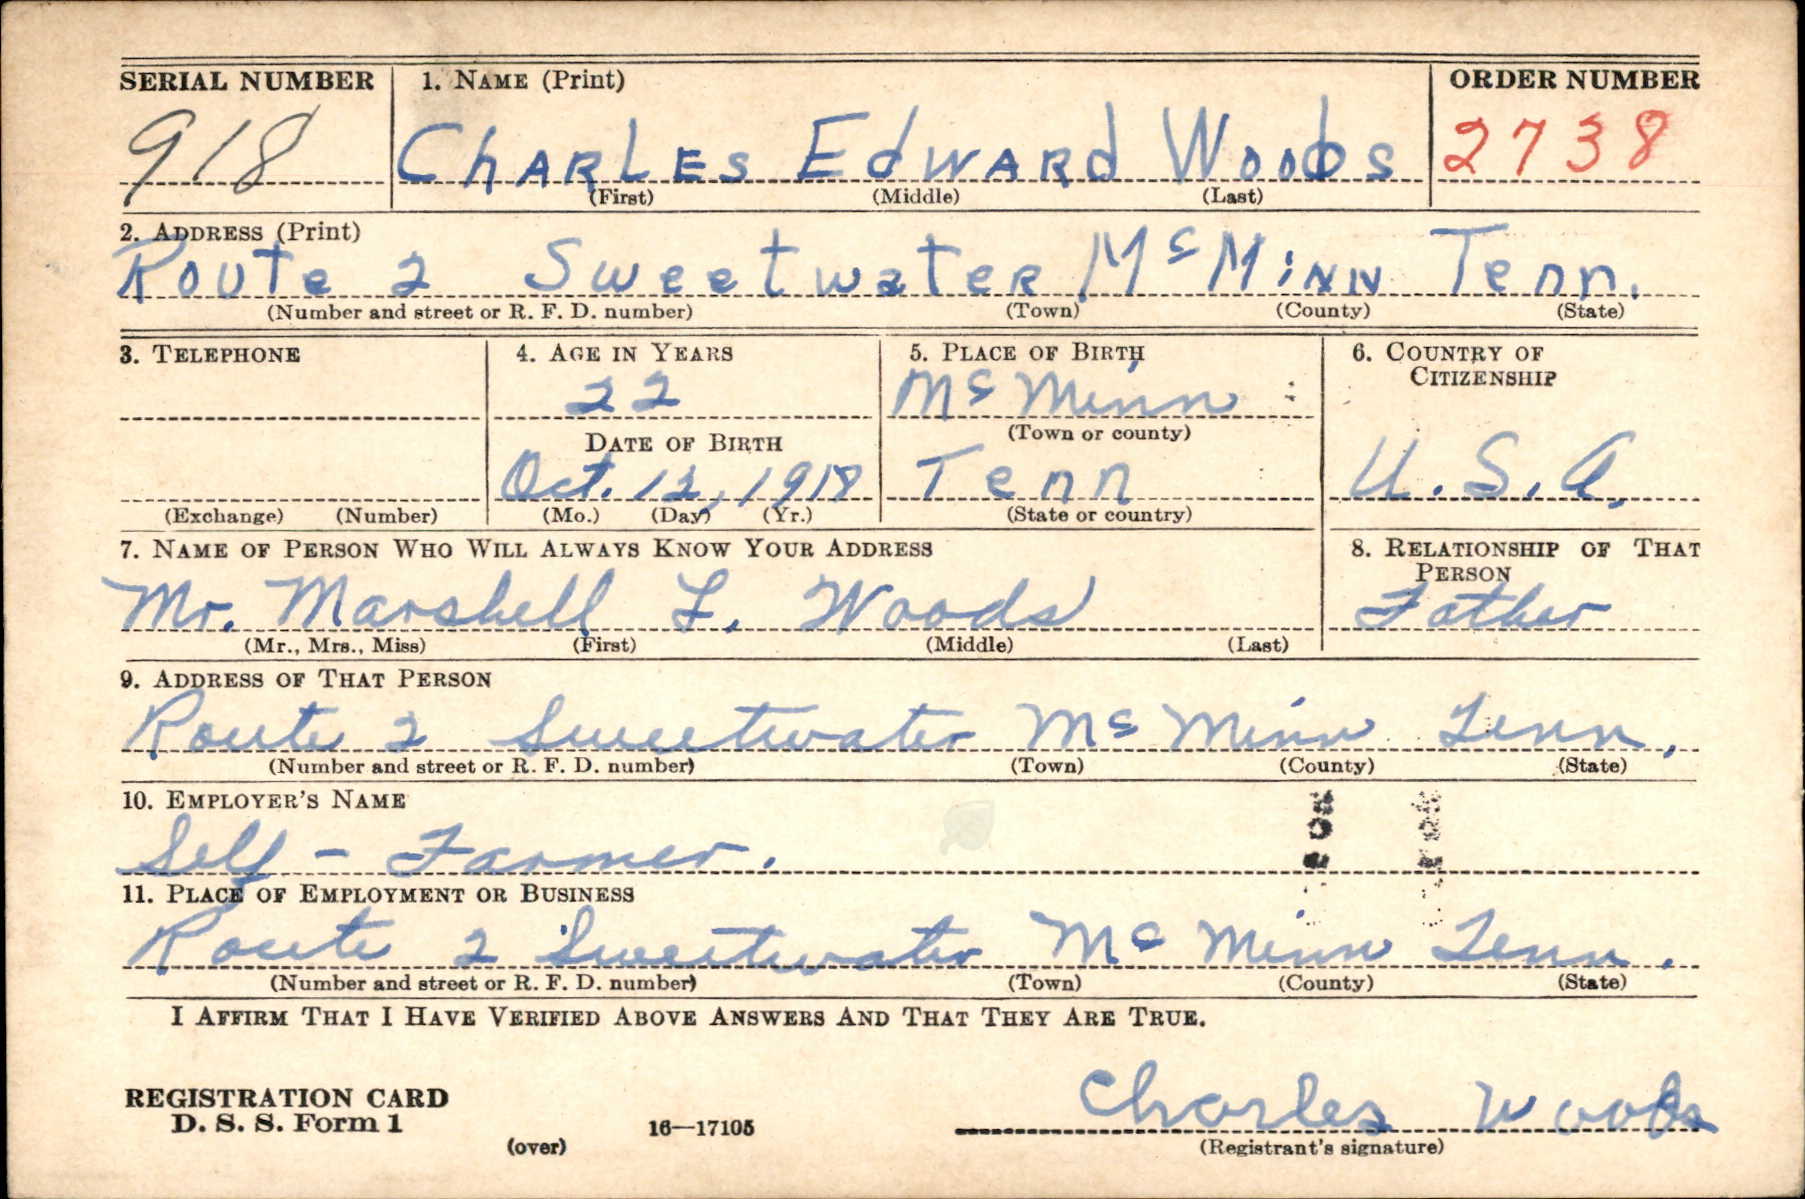 SERIAL NUMBER 1. NAME (Print) ORDER NUMBER
918 CHARLES EdWARd WOODS 2738
(First) (Middle) (Last)
2. ADDRESS (Print)
ROUTe 2 SweetwateR McMiNN Tenn.
(Number and street or R. F. D. number) (Town) (County) (State)
3. TELEPHONE 4. AGE IN YEARS 5. PLACE OF BIRTH 6. COUNTRY OF CITIZENSHIP
22 McMinn
(Town or county)
DATE OF BIRTH
Oct. 12, 1918 Tenn U.S.A.
(Exchange) (Number) (Mo.) (Day) (Yr.) (State or country)
7. NAME OF PERSON WHO WILL ALWAYS KNOW YOUR ADDRESS 8. RELATIONSHIP OF THAT PERSON
Mr. Marshell F. Woods Father
(Mr., Mrs., Miss) (First) (Middle) (Last)
9. ADDRESS OF THAT PERSON
Route 2 Sweetwater McMinn Tenn.
(Number and street or R. F. D. number) (Town) (County) (State)
10. EMPLOYER'S NAME
Self - Farmer.
11. PLACE OF EMPLOYMENT OR BUSINESS
Route 2 Sweetwater McMinn Tenn.
(Number and street or R. F. D. number) (Town) (County) (State)
I AFFIRM THAT I HAVE VERIFIED ABOVE ANSWERS AND THAT THEY ARE TRUE.
REGISTRATION CARD
D. S. S. Form 1
(over) 16—17105
Charles Woods
(Registrant's signature)